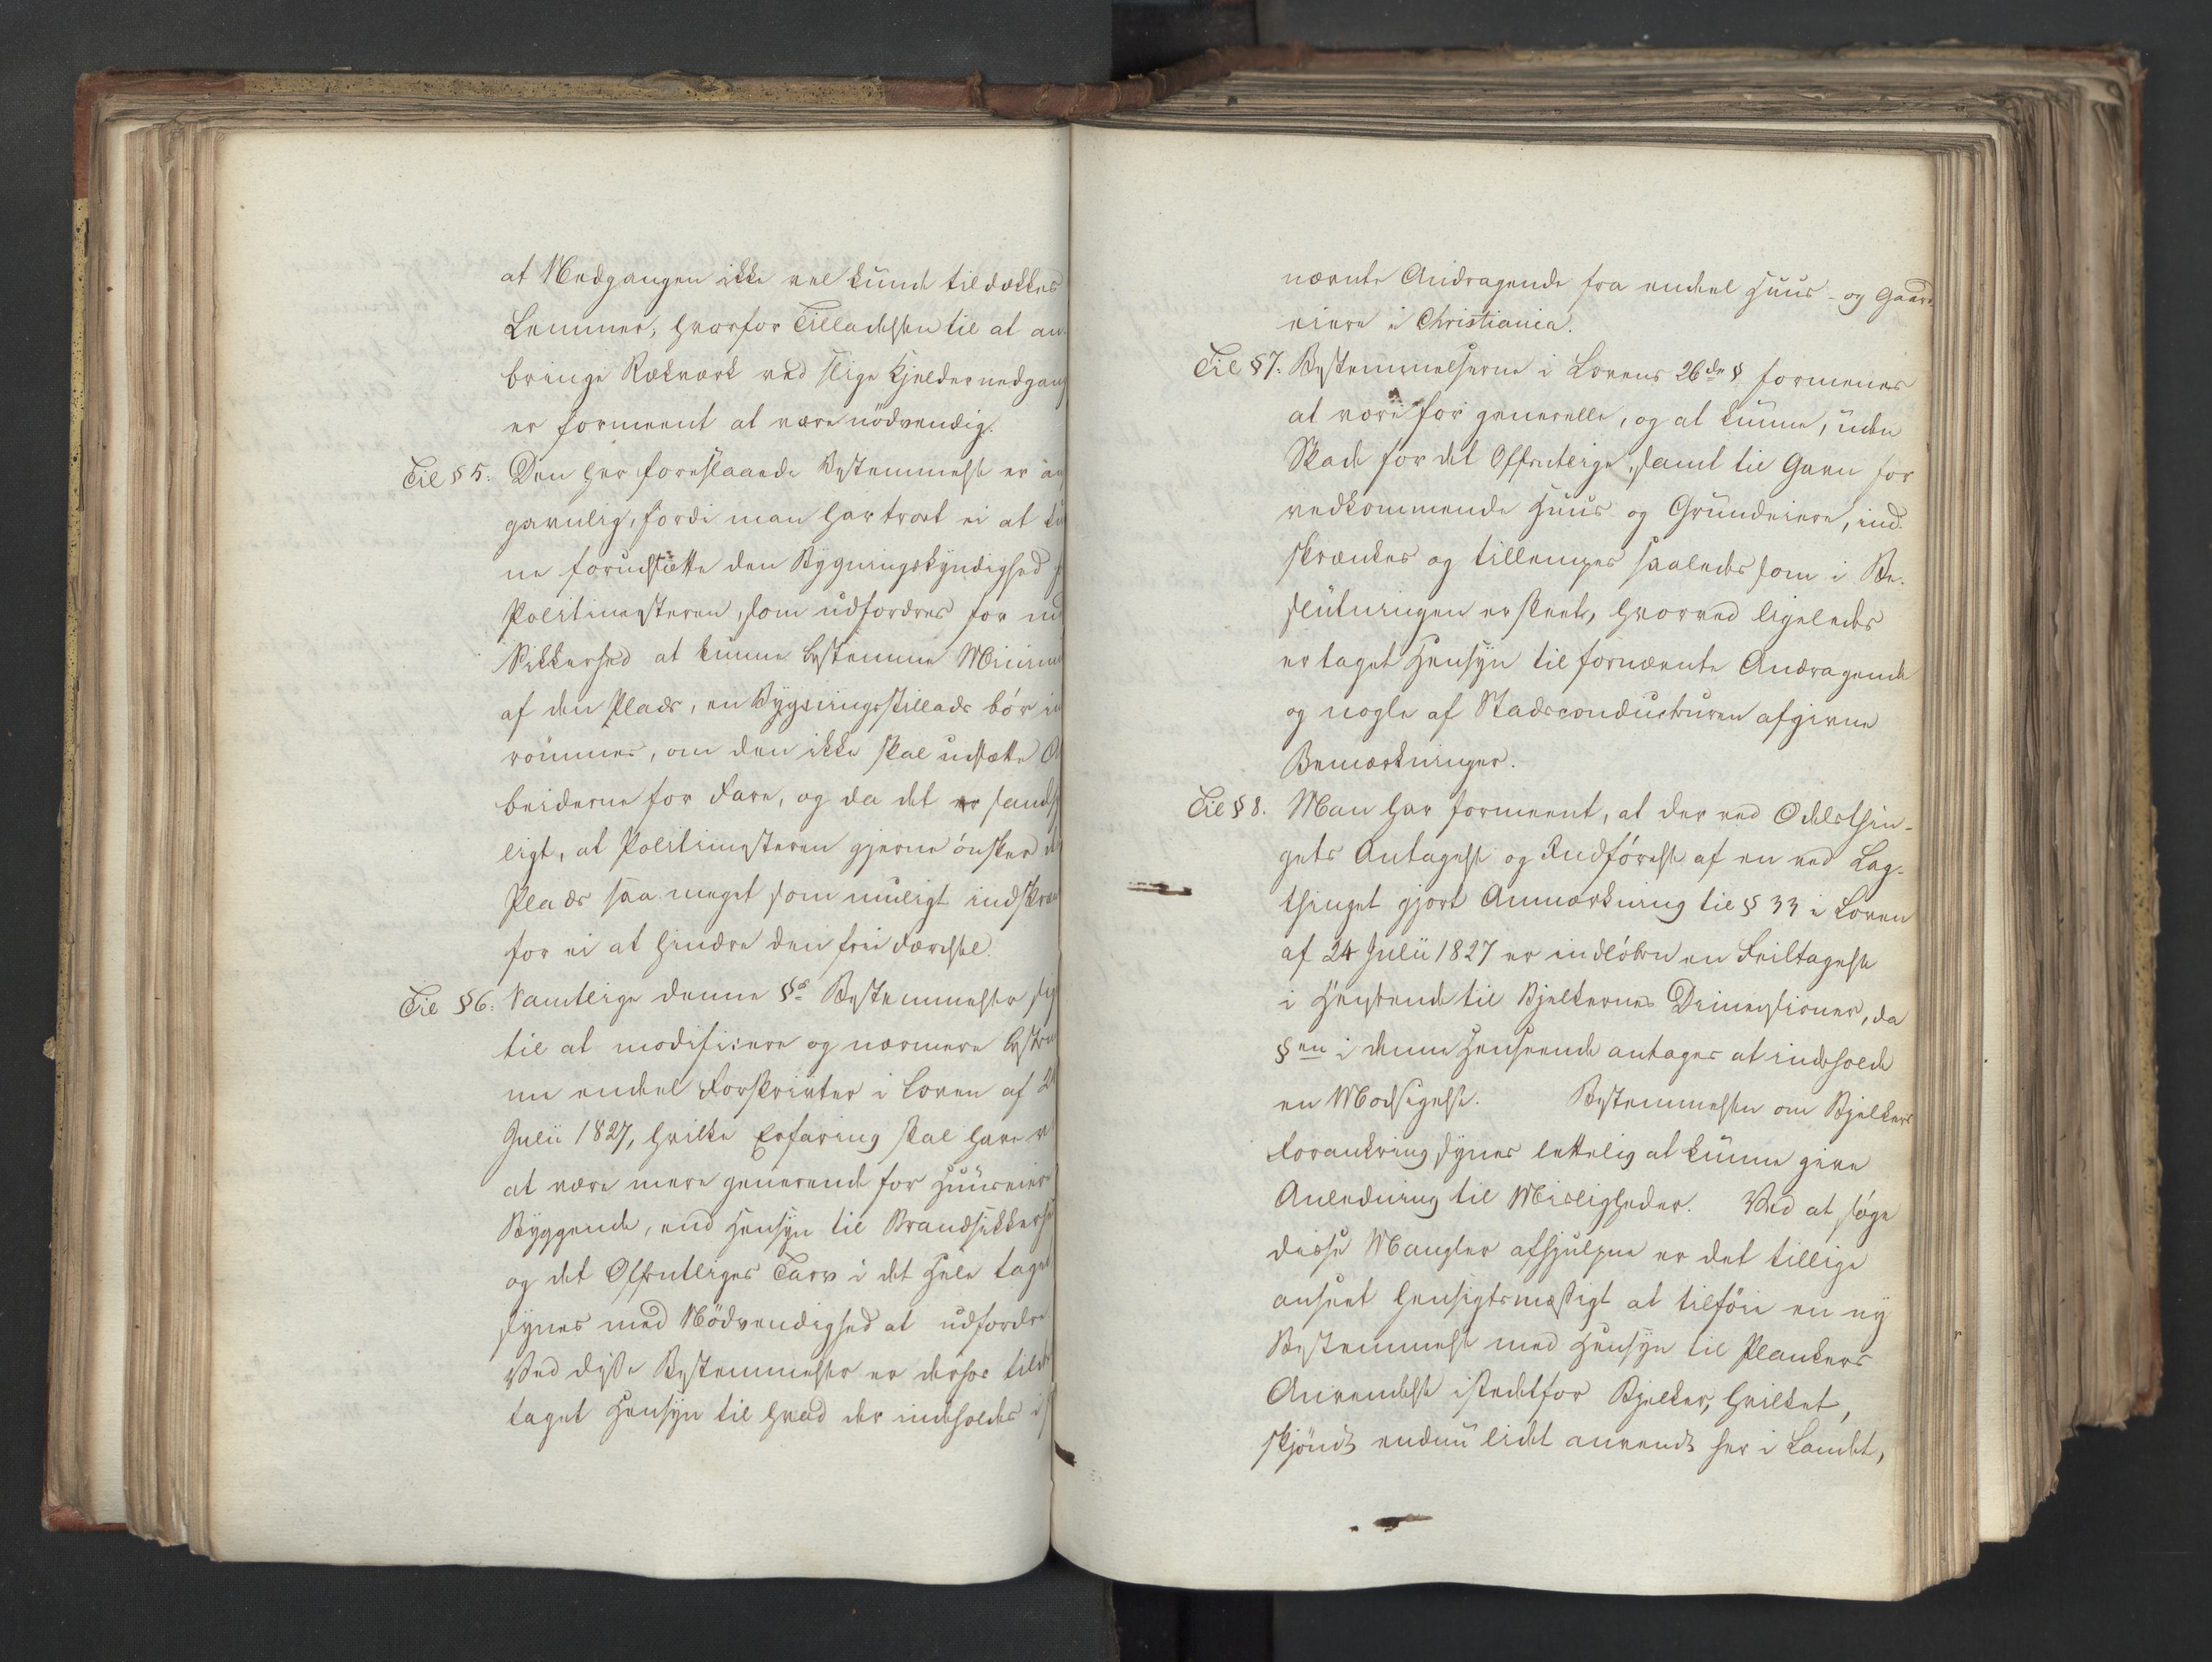 at Nedgangen ikke vel kunde tildækkes
Lemmer, hvorfor Tilladelsen til at an-
bringe Rækværk ved slige Kjeldernedgang
er formeent at være nödvendig.
Til § 5. Den her foreslaaede Bestemmelse er an
gavnlig, fordi man har troet ei at kun
ne forudsætte den Bygningskyndighed
Politimesteren, som udfordres for med
Sikkerhed at kunne bestemme Minimum
af den Plads, en Bygningsstillads bör ind
rømmes, om den ikke skal udsætte Ar
beiderne for Fare, og da det er sandsyn
ligt, at Politimesteren gjerne ønsker den
Plads saa meget som muligt indskræn
for ei at hindre den frie Færdsel.
Til § 6. Samtlige denne §s Bestemmelser sig
til at modificere og nærmere bestem
me endeel Forskrivter i Loven af 24
Julii 1827, hvilke Erfaring skal have vi
at være mere generende for Huuseiere
Byggende, end Hensyn til Brandsikkerhed
og det Offentliges Tarv i det Hele taget
synes med Nödvendighed at udfordre.
Ved disse Bestemmelser er derfor tild
taget Hensyn til hvad der indeholdes i
nævnte Andragende fra endeel Huus- og Gaard-
eiere i Christiania.
Til § 7. Bestemmelserne i Lovens 26de § formenes
at være for generelle, og at kunne, uden
Skade for det Offentlige, samt til Gavn for
vedkommende Huus- og Grundeiere, ind-
skrænkes og tillempes saaledes som i Be-
slutningen er skeet, hvorved ligeledes
er taget Hensyn til fornævnte Andragende
og nogle af Stadsconducteuren afgivne
Bemærkninger.
Til § 8. Man har formeent, at der ved Odelsthin-
gets Antagelse og Indförelse af en ved Lag-
thinget gjort Anmærkning til § 33 i Loven
af 24 Julii 1827 er indlöben en Feiltagelse
i Henseende til Bjelkernes Dimensioner, da
§en i denne Henseende antages at indeholde
en Modsigelse. Bestemmelsen om Bjelkers
Forankring synes lettelig at kunne give
Anledning til Misligheder. Ved at søge
disse Mangler afhjulpne er det tillige
anseet hensigtsmæssigt at tilföie en ny
Bestemmelse med Hensyn til Plankers
Anvendelse istedetfor Bjelker, hvilket,
skjöndt endnu lidet anvendt her i Landet,